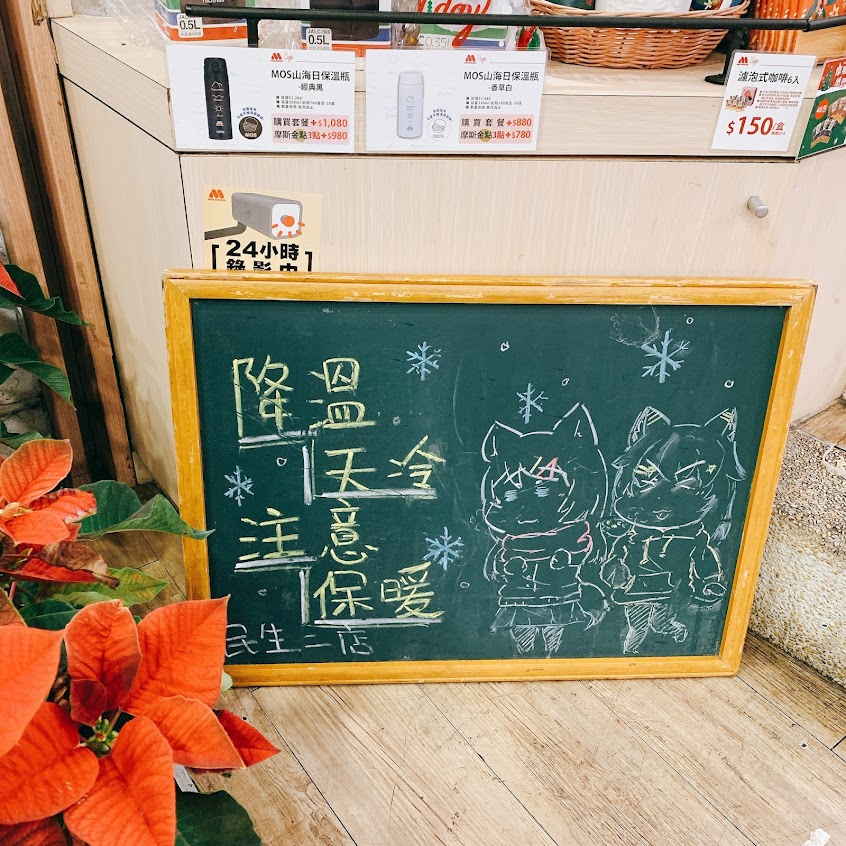 0.5L
JALC-500
0.5L
day
0.35L
MOS山海日保溫瓶
-經典黑
購買套餐+$1,080
摩斯金點3點+$980
MOS
Cafe
MOS山海日保溫瓶
-香草白
購買套餐+$880
摩斯金點3點+$780
MOS
濾泡式咖啡6入
$150/盒
24小時
錄影中
降溫
天冷
注意
保暖
民生二店